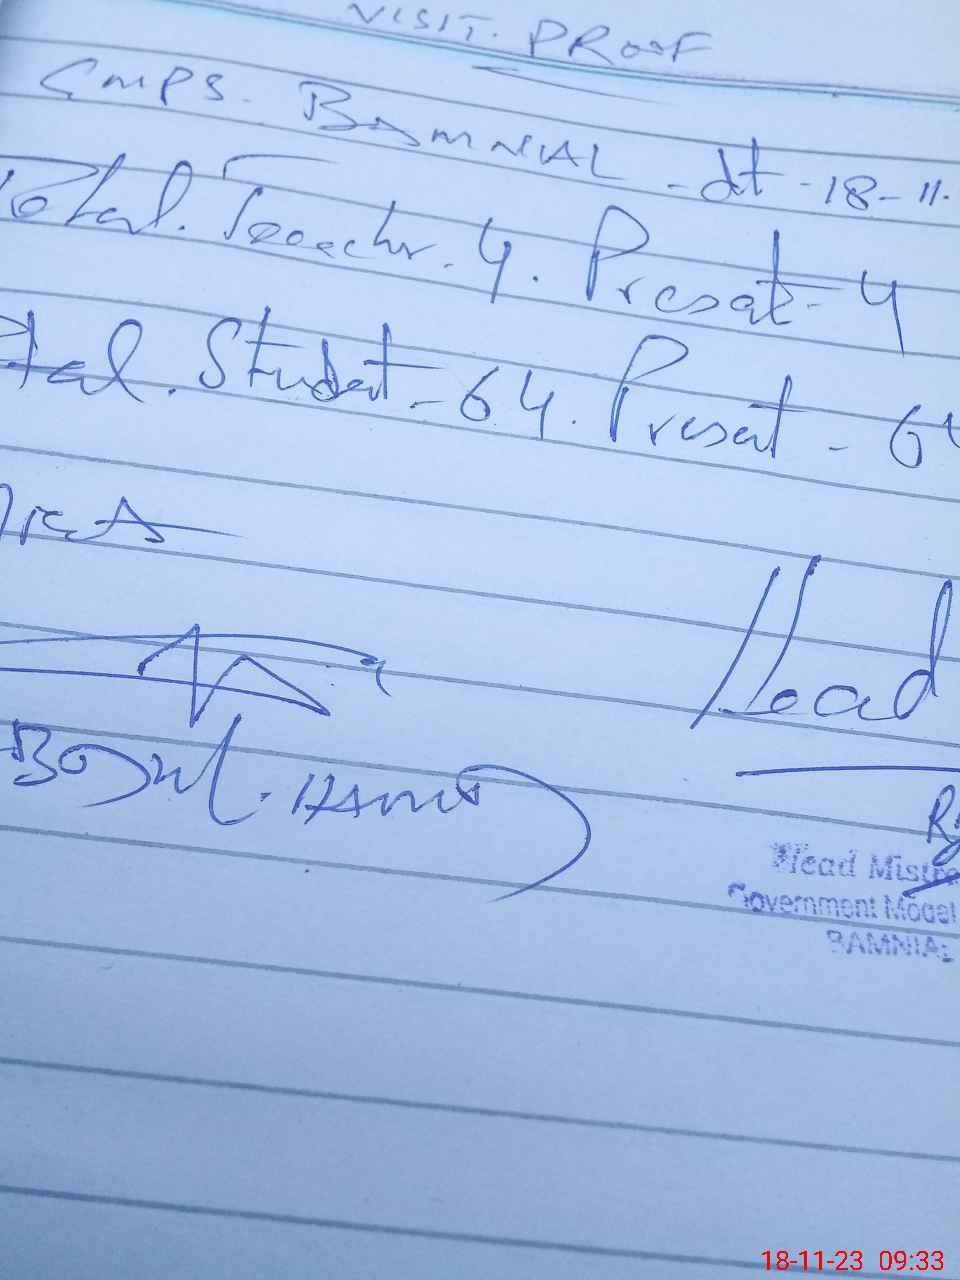 VISIT. PROOF
GMPS. BAMNIAL - dt - 18-11.
Total. Teacher. 4. Present - 4
Total. Student - 64. Present - 64
Head
Head Mistre
Government Model
BAMNIAL
18-11-23 09:33